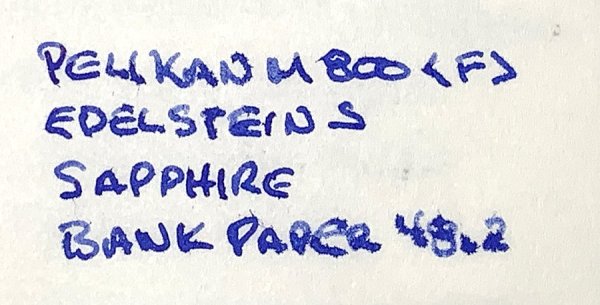 PELIKAN M800 <F>
EDELSTEIN S
SAPPHIRE
BANK PAPER 48.2